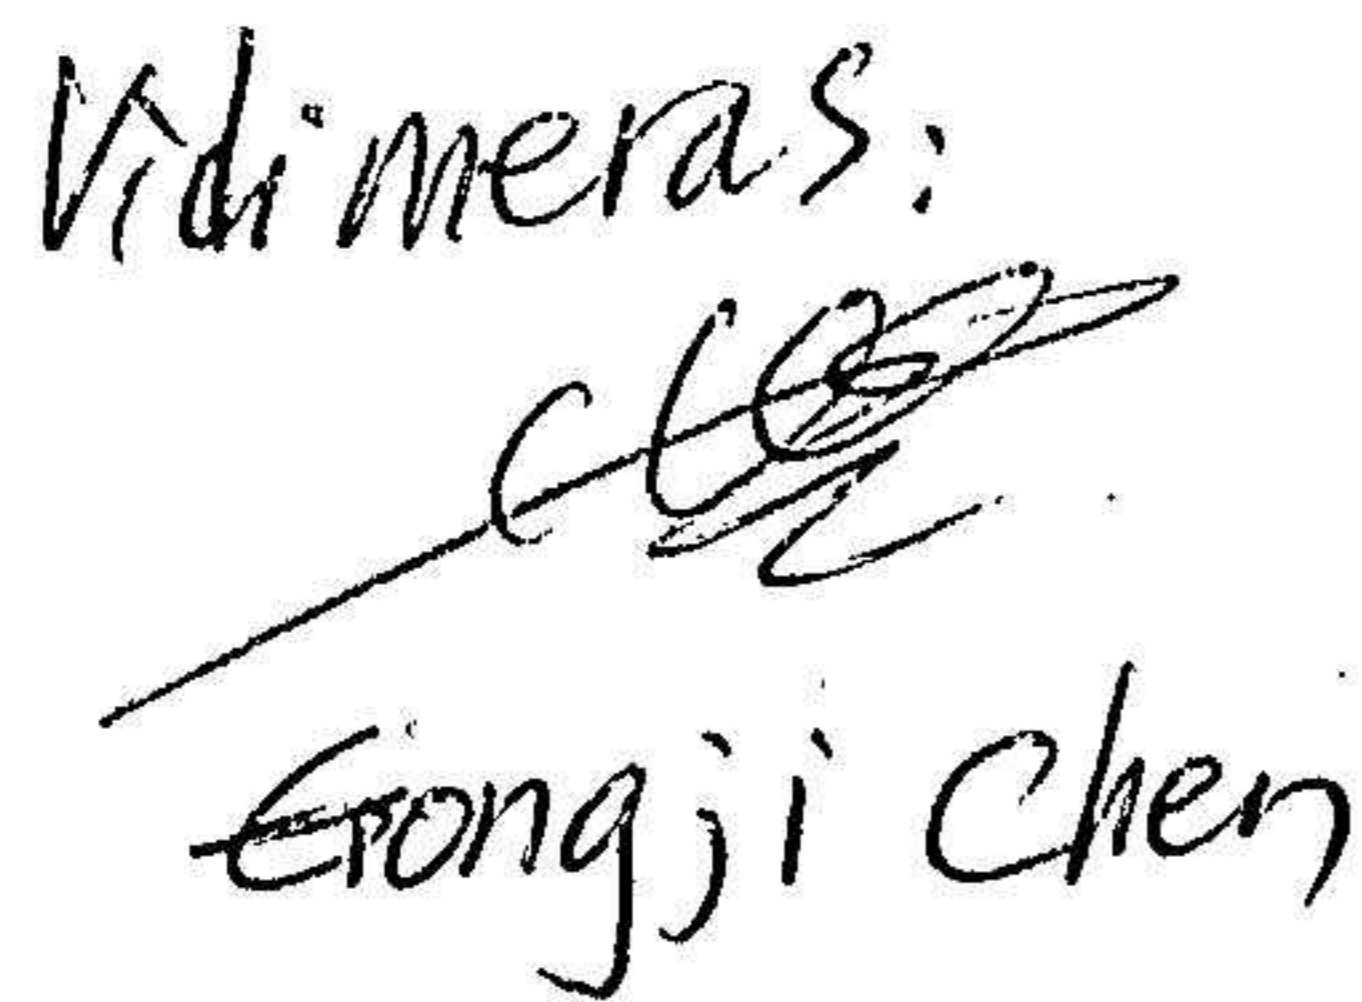 Vidimeras:
Gongji Chen